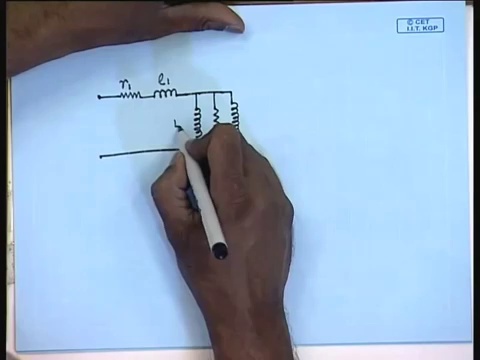 © CET
I.I.T. KGP
r₁ l₁